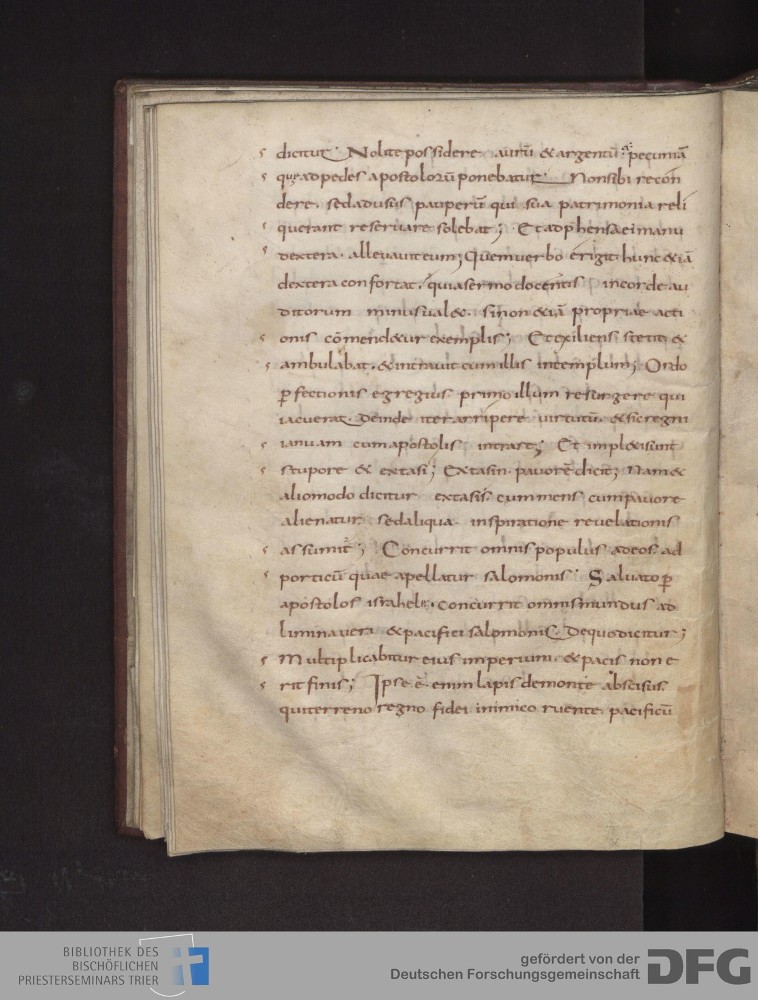 dicitur; Nolite possidere aurū & argentū. pecuniā
quę ad pedes apostolorū ponebatur. Non sibi recon
dere. sed ad usus pauperū qui sua patrimonia reli
querant reservare solebat; Et adp̄hensa ei manu
dextera. allevavit eum; Quem verbo erigit hunc & iā
dextera confortat. quia sermo docentis in corde au
ditorum minus val&. si non & iā propriae acti
onis cōmend&ur exemplis; Et exiliens stetit &
ambulabat. & intravit cum illis in templum; Ordo
p̄fectionis egregius. primo illum resurgere qui
iacuerat. Deinde iter arripere virtutū. & sic regni
ianuam cum apostolis intrare; Et impl&i sunt
stupore & extasi; Extasin. pavorē dicit; Nam &
alio modo dicitur extasis. cum mens cum pavore
alienatur sed aliqua inspiratione revelationis
assumit̄; Concurrit omnis populus ad eos. ad
porticū quae apellatur salomonis; Salvato p̄
apostolos israhel. concurrit omnis mundus ad
limina veri & pacifici salomonis. De quo dicitur;
Multiplicabitur eius imperium. & pacis non e
rit finis; Ipse ē enim lapis de monte abscisus.
qui terreno regno fidei inimico ruente. pacificū
BIBLIOTHEK DES
BISCHÖFLICHEN
PRIESTERSEMINARS TRIER
gefördert von der
Deutschen Forschungsgemeinschaft
DFG